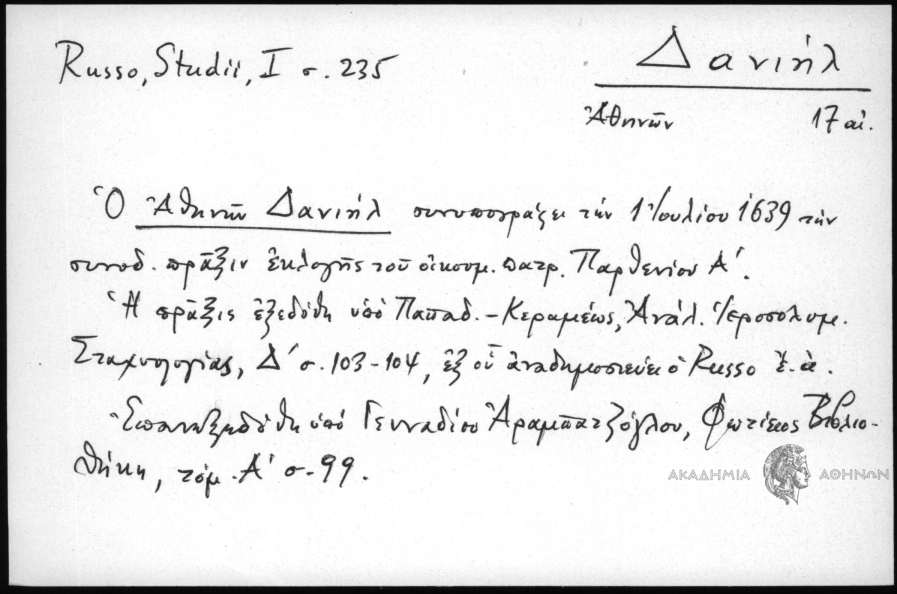 Russo, Studii, I σ. 235
Δανιήλ
Ἀθηνῶν 17 αἰ.
Ὁ Ἀθηνῶν Δανιήλ συνυπογράφει τήν 1 Ἰουλίου 1639 τήν
συνοδ. πρᾶξιν ἐκλογῆς τοῦ οἰκουμ. πατρ. Παρθενίου Α΄.
Ἡ πρᾶξις ἐξεδόθη ὑπό Παπαδ.-Κεραμέως, Ἀνάλ. Ἱεροσολυμ.
Σταχυολογίας, Δ΄ σ. 103-104, ἐξ οὗ ἀναδημοσιεύει ὁ Russo ἔ.ἀ.
Ἐπανεξεδόθη ὑπό Γενναδίου Ἀραμπατζόγλου, Φωτίειος Βιβλιο-
θήκη, τόμ. Α΄ σ. 99.
ΑΚΑΔΗΜΙΑ ΑΘΗΝΩΝ